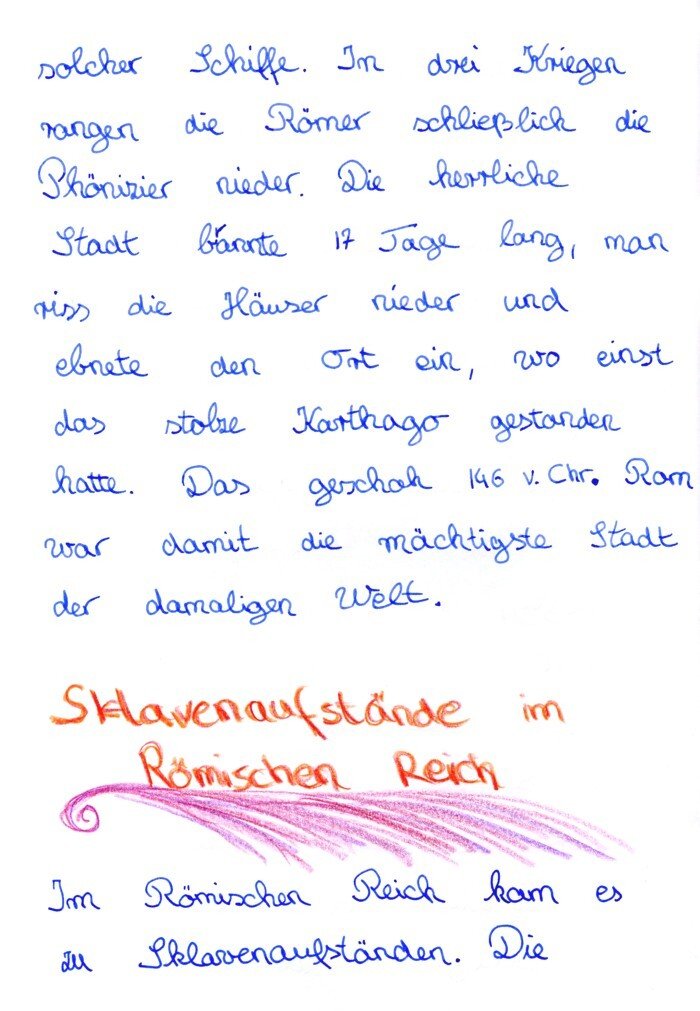 solcher Schiffe. In drei Kriegen
rangen die Römer schließlich die
Phönizier nieder. Die herrliche
Stadt brannte 17 Tage lang, man
riss die Häuser nieder und
ebnete den Ort ein, wo einst
das stolze Karthago gestanden
hatte. Das geschah 146 v. Chr. Rom
war damit die mächtigste Stadt
der damaligen Welt.
Sklavenaufstände im
Römischen Reich
Im Römischen Reich kam es
zu Sklavenaufständen. Die